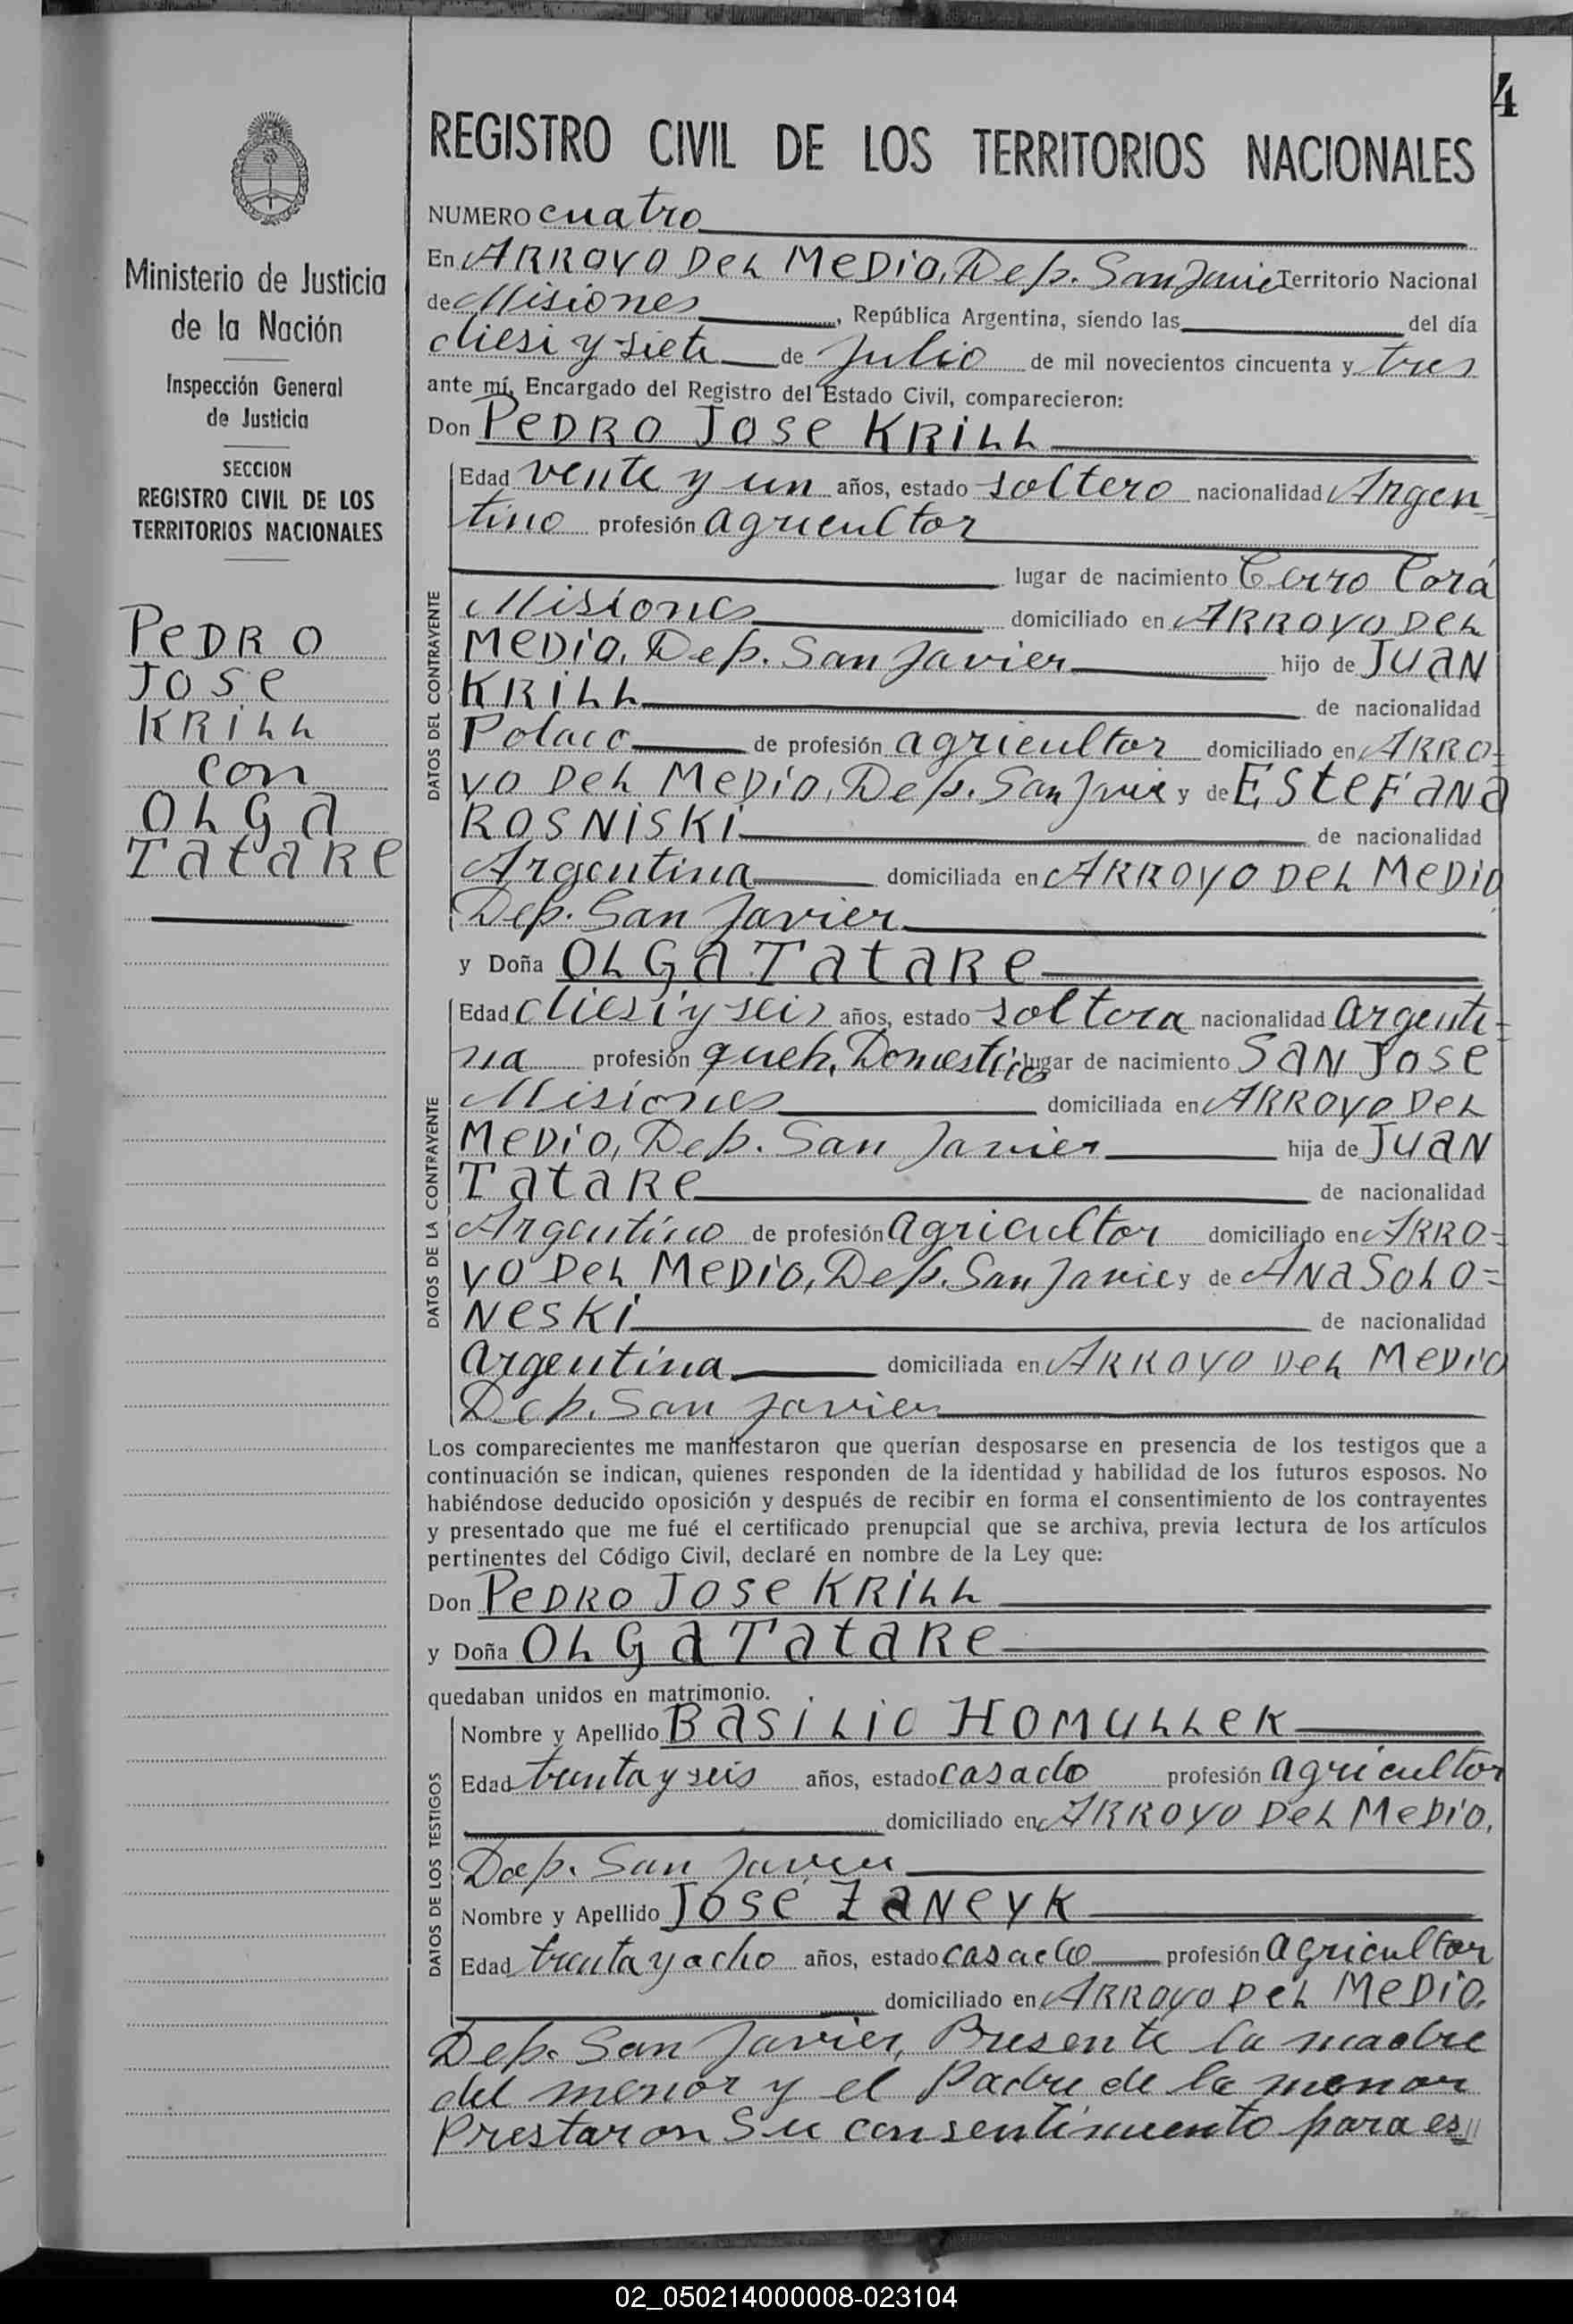 4
REGISTRO CIVIL DE LOS TERRITORIOS NACIONALES
Ministerio de Justicia
de la Nación
Inspección General
de Justicia
SECCION
REGISTRO CIVIL DE LOS
TERRITORIOS NACIONALES
PEDRO
JOSE
KRILL
con
OLGA
TATARE
NUMERO cuatro
En ARROYO DEL MEDIO, Dep. San Javier Territorio Nacional
de Misiones, República Argentina, siendo las del día
diesi y siete de Julio de mil novecientos cincuenta y tres
ante mí, Encargado del Registro del Estado Civil, comparecieron:
Don PEDRO JOSE KRILL
DATOS DEL CONTRAYENTE
Edad vente y un años, estado soltero nacionalidad Argen-
tino profesión agricultor
lugar de nacimiento Cerro Corá
Misiones domiciliado en ARROYO DEL
MEDIO, Dep. San Javier hijo de JUAN
KRILL de nacionalidad
Polaco de profesión agricultor domiciliado en ARRO=
YO DEL MEDIO, Dep. San Javier y de ESTEFANA
ROSNISKI de nacionalidad
Argentina domiciliada en ARROYO DEL MEDIO
Dep. San Javier
y Doña OLGA TATARE
DATOS DE LA CONTRAYENTE
Edad diesi y seis años, estado soltera nacionalidad argenti=
na profesión queh. Domesticos lugar de nacimiento SAN JOSE
Misiones domiciliada en ARROYO DEL
MEDIO, Dep. San Javier hija de JUAN
TATARE de nacionalidad
Argentino de profesión agricultor domiciliado en ARRO=
YO DEL MEDIO, Dep. San Javier y de ANA SOLO=
NESKI de nacionalidad
argentina domiciliada en ARROYO DEL MEDIO
Dep. San Javier
Los comparecientes me manifestaron que querían desposarse en presencia de los testigos que a
continuación se indican, quienes responden de la identidad y habilidad de los futuros esposos. No
habiéndose deducido oposición y después de recibir en forma el consentimiento de los contrayentes
y presentado que me fué el certificado prenupcial que se archiva, previa lectura de los artículos
pertinentes del Código Civil, declaré en nombre de la Ley que:
Don PEDRO JOSE KRILL
y Doña OLGA TATARE
quedaban unidos en matrimonio.
DATOS DE LOS TESTIGOS
Nombre y Apellido BASILIO HOMULLEK
Edad trenta y seis años, estado casado profesión agricultor
domiciliado en ARROYO DEL MEDIO,
Dep. San Javier
Nombre y Apellido JOSÉ ZANEYK
Edad trenta y acho años, estado casado profesión agricultor
domiciliado en ARROYO DEL MEDIO.
Dep. San Javier, Presente la madre
del menor y el Padre de la menor
Prestaron Su consentimiento para es//
02_050214000008-023104